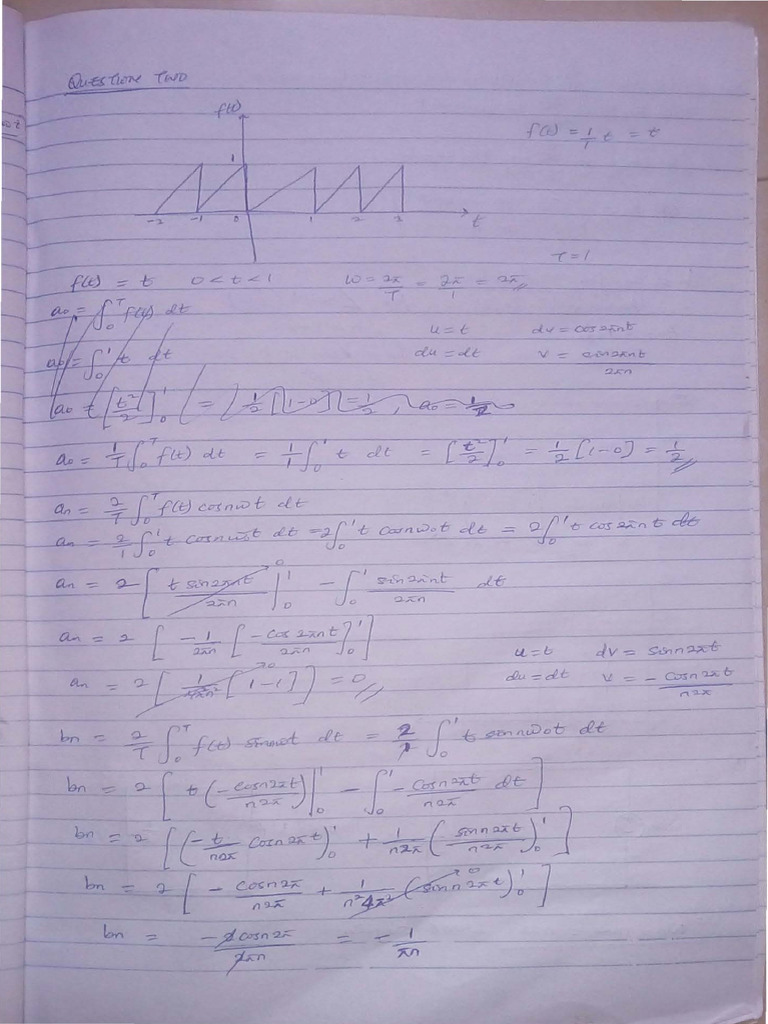 QUESTION TWO
f(t)
f(t) = 1/T t = t
1
-2 -1 0 1 2 3 t
T = 1
f(t) = t 0 < t < 1 ω = 2π/T = 2π/1 = 2π
a₀ = ∫₀ᵀ f(t) dt
u = t dv = cos2πnt
a₀ = ∫₀¹ t dt
du = dt v = sin2πnt/2πn
a₀ = [t²/2]₀¹ = 1/2 [1-0] = 1/2, a₀ = 1/2
a₀ = 1/T ∫₀ᵀ f(t) dt = 1/1 ∫₀¹ t dt = [t²/2]₀¹ = 1/2 [1-0] = 1/2
an = 2/T ∫₀ᵀ f(t) cosnωt dt
an = 2/1 ∫₀¹ t cosnωt dt = 2∫₀¹ t cosnω₀t dt = 2∫₀¹ t cos2πnt dt
an = 2 [ t sin2πnt/2πn |₀¹ - ∫₀¹ sin2πnt/2πn dt
an = 2 [ -1/2πn [ -cos2πnt/2πn ]₀¹ ]
u = t dv = sinn2πt
an = 2 [ [1-1] ] = 0
du = dt v = -cosn2πt/n2π
bn = 2/T ∫₀ᵀ f(t) sinnωt dt = 2/1 ∫₀¹ t sinnω₀t dt
bn = 2 [ t(-cosn2πt/n2π)|₀¹ - ∫₀¹ -cosn2πt/n2π dt ]
bn = 2 [ (-t/n2π cosn2πt)₀¹ + 1/n2π (sinn2πt/n2π)₀¹ ]
bn = 2 [ -cosn2π/n2π + 1/n²4π² (sinn2πt)₀¹ ] 0
bn = -2cosn2π/2πn = -1/πn